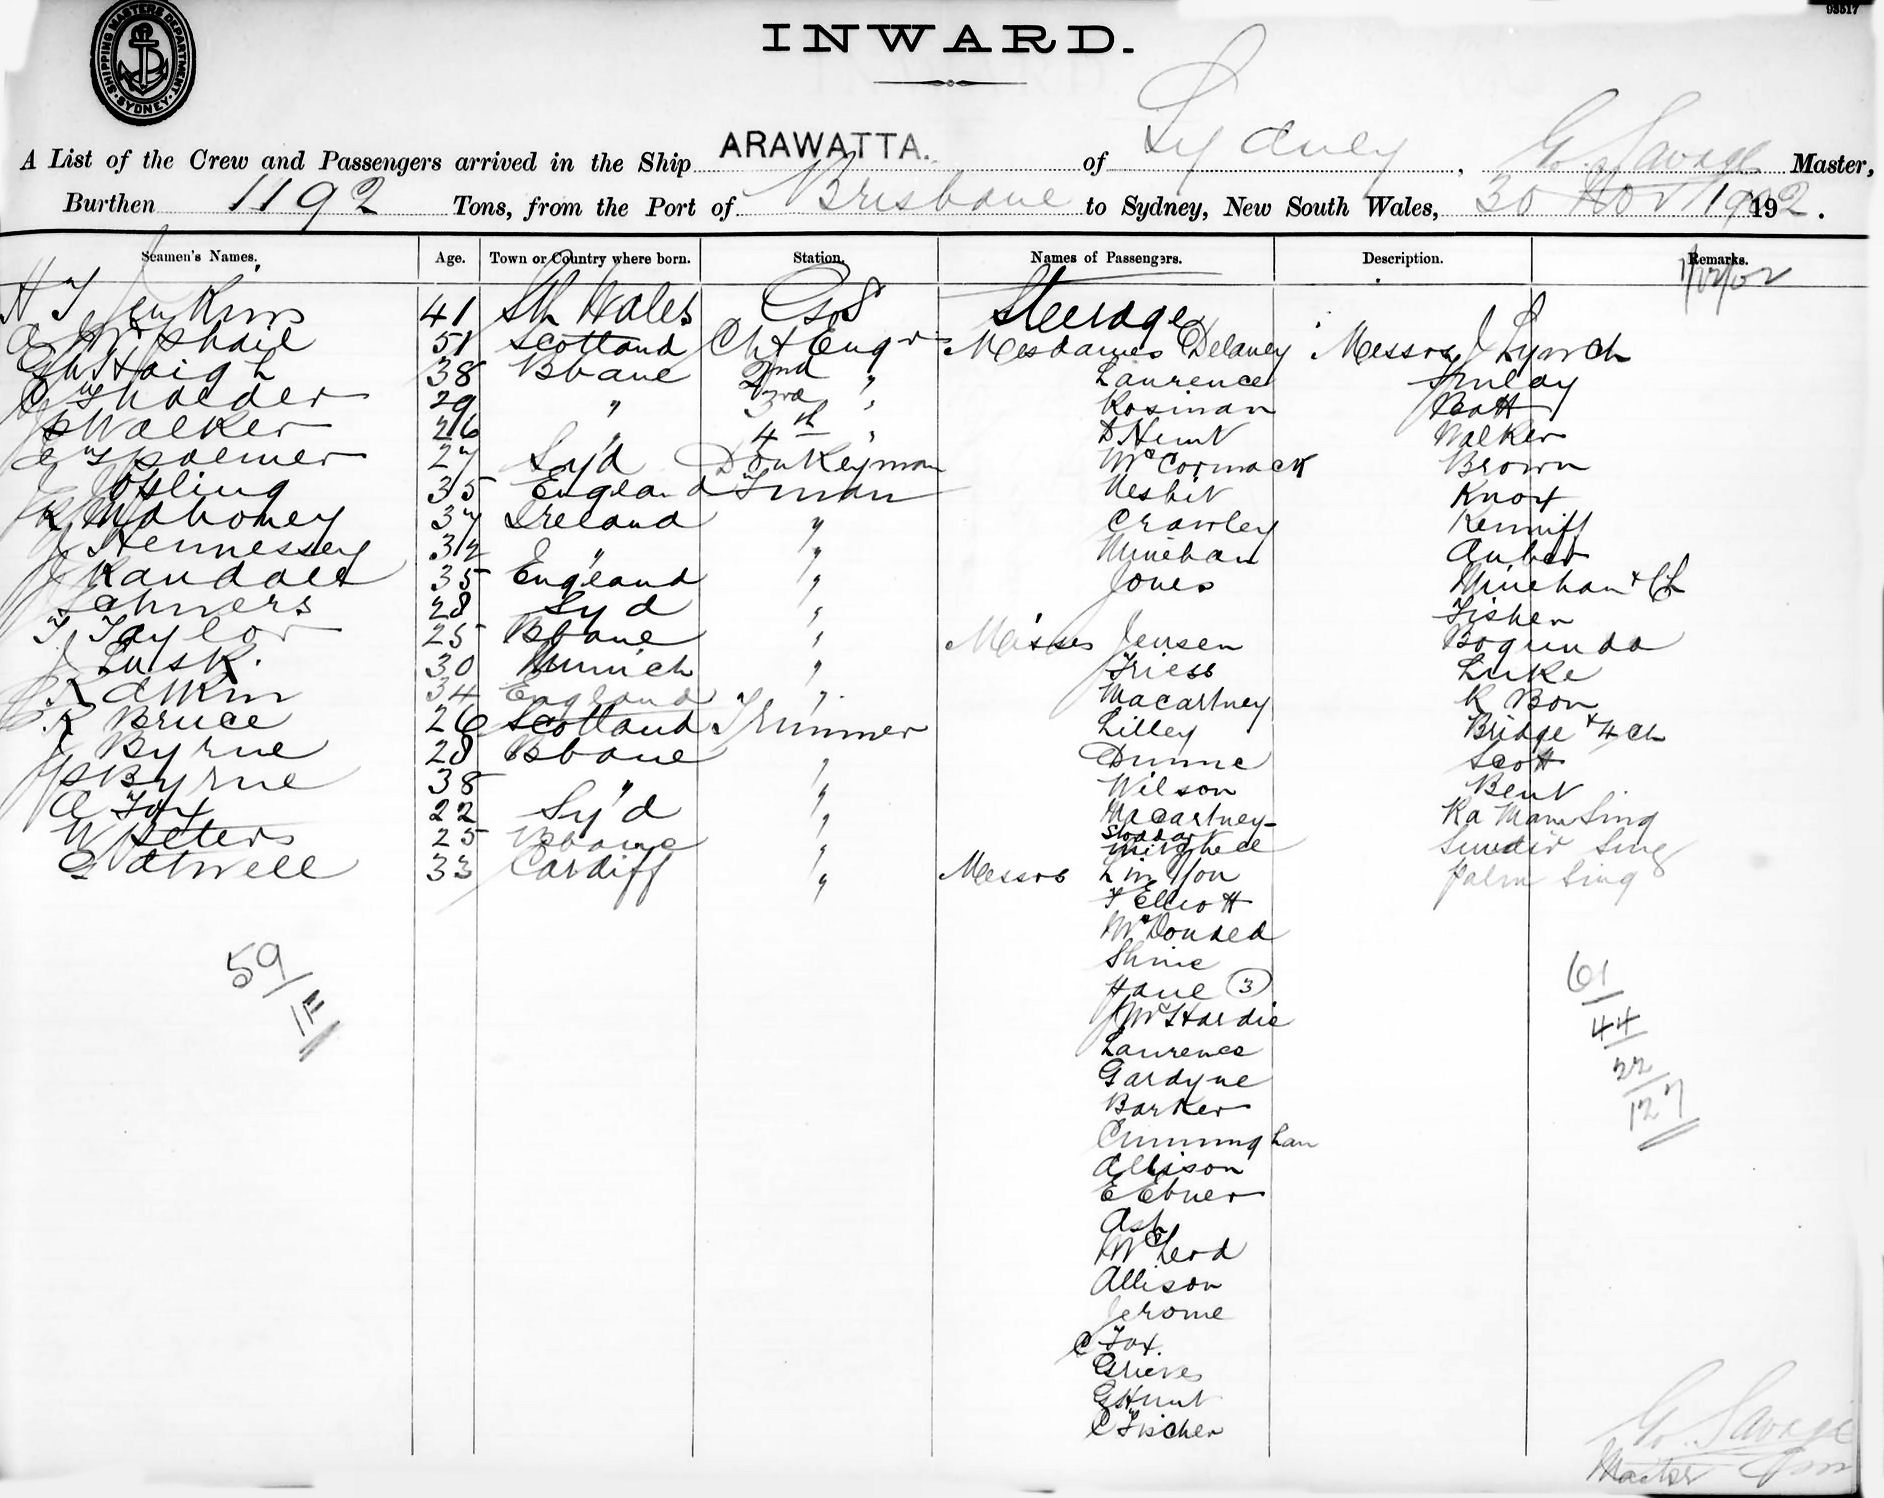 93517
SHIPPING MASTERS DEPARTMENT SYDNEY
INWARD.
A List of the Crew and Passengers arrived in the Ship ARAWATTA. of Sydney, G. Savage Master,
Burthen 1192 Tons, from the Port of Brisbane to Sydney, New South Wales, 30 Nov 1902.
Seamen's Names. Age. Town or Country where born. Station. Names of Passengers. Description. Remarks.
1/12/02
H T Jenkins 41 Sth Wales Steerage
McPhail 51 Scotland Ch Engr Mesdames Delaney Messrs J Lynch
Haigh 38 Bbane 2nd " Laurence Finlay
Holder 29 " 3rd " Rosinan Bott
Walker 26 " 4th " D Hunt Walker
27 Syd Donkeyman McCormack Brown
J Josling 35 England Fman Nesbit Knox
Mahoney 37 Ireland " Crawley Kenniff
J Hennessey 32 " " Minehan
J Randall 35 England " Jones Minehan + Ch
28 Syd " Fisher
T Taylor 25 Bbane " Misses Jensen Bogunda
J Lusk. 30 Munich " Friess Luke
Atkin 34 England " Macartney R Bon
Bruce 26 Scotland Trimmer Lilley Bridge + 4 Ch
J Byrne 28 Bbane " Dunne Scott
P Byrne 38 " " Wilson Bent
A Fox 22 Syd " Macartney Ra Mam Sing
W Peters 25 Bbane " Sundir Sing
G Atwell 33 Cardiff " Messrs Linton Palm Sing
F Elliott
McDonald
Shine
Hane 3
J McHardie
Laurence
Gardyne
Barker
Cunningham
Allison
E Ebner
Ash
McLeod
Allison
Jerome
C Fox.
Grieves
G Hunt
C Fischer
59
61
44
22
127
G. Savage
Master